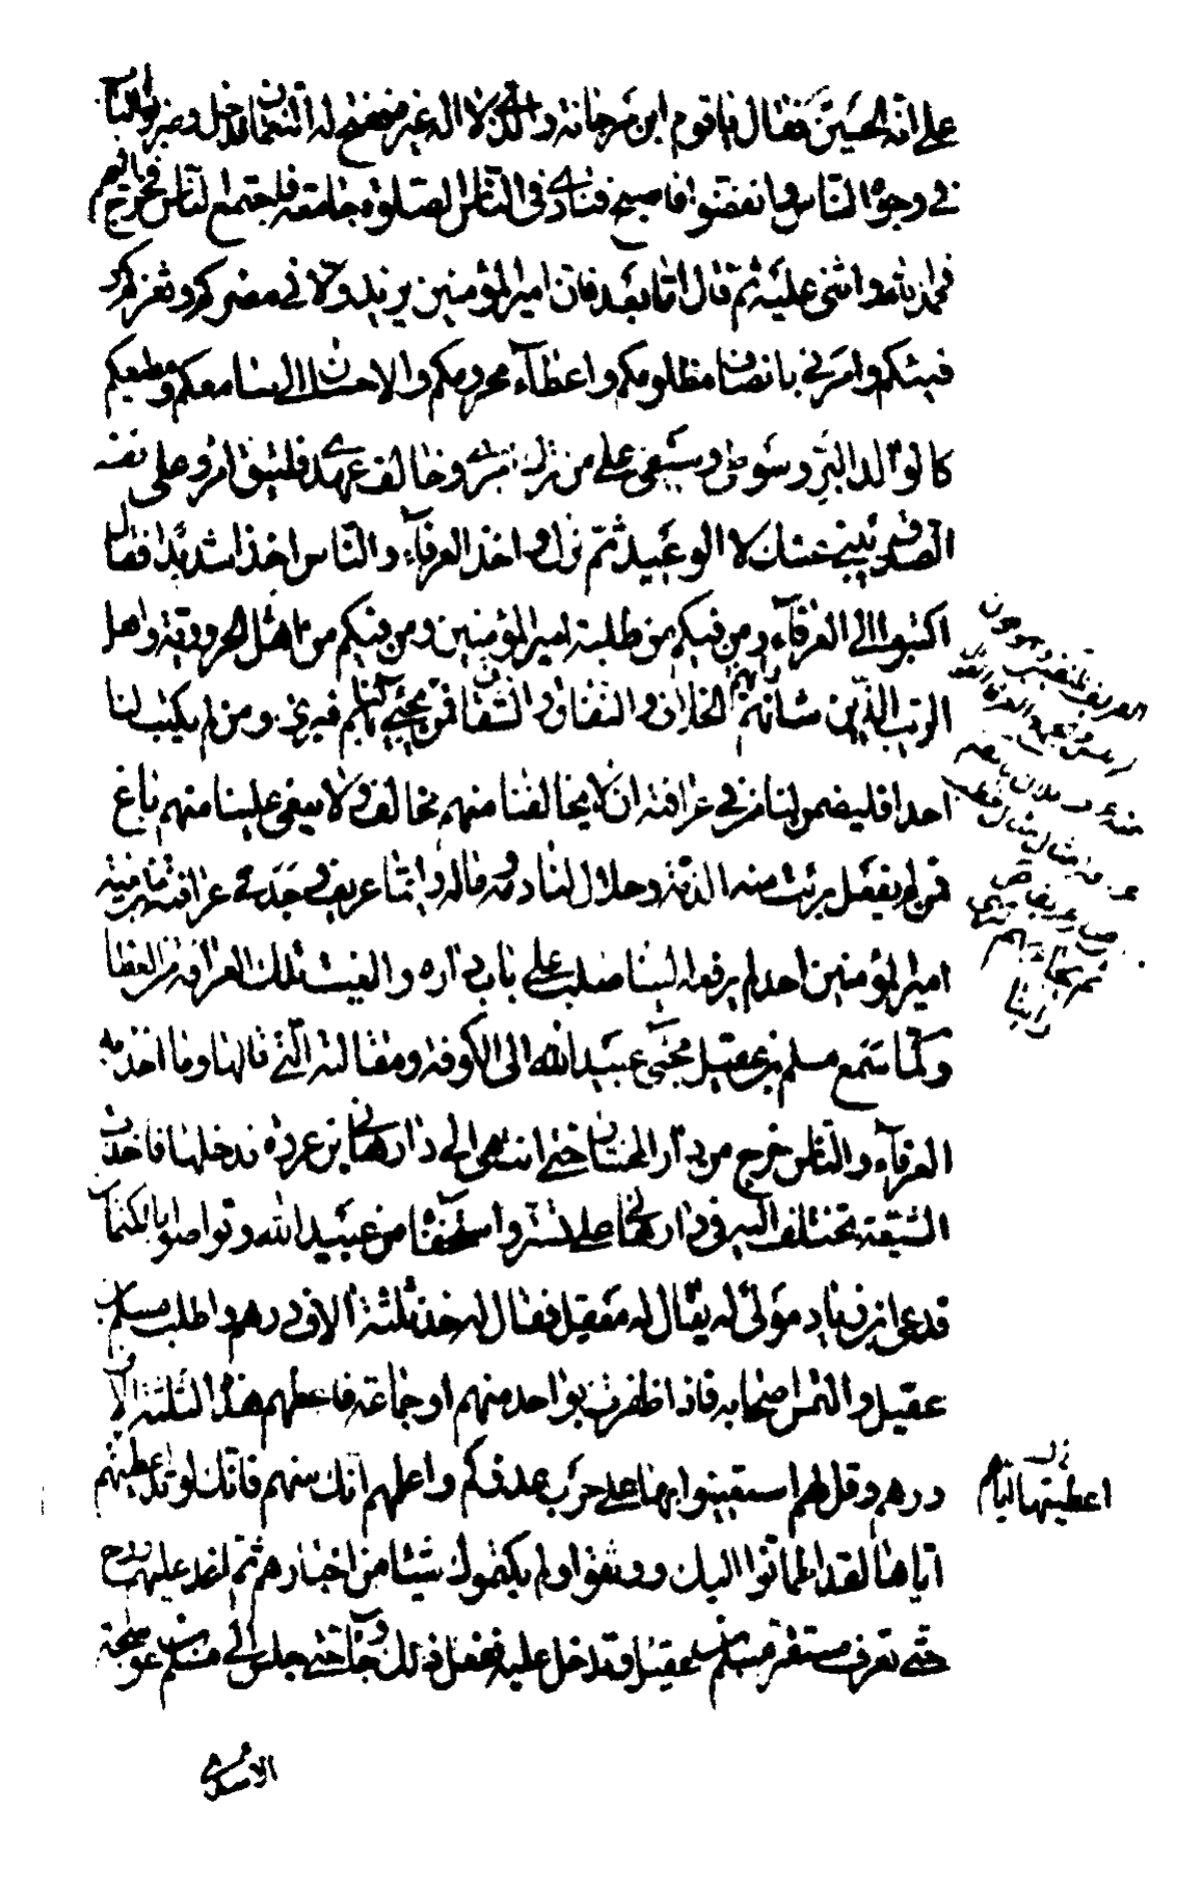 على انه الحسين فقال يا قوم ابن مرجانة والذي لا اله غيره ففتح له النعمان فدخل وضربوا الباب
في وجوه الناس وانفضوا فاصبح فنادى في الناس الصلوة جامعة فاجتمع الناس فخرج اليهم
فحمد الله واثنى عليه ثم قال اما بعد فان امير المؤمنين يزيد ولاني مصركم وثغركم
وفيئكم وامرني بانصاف مظلومكم واعطاء محرومكم والاحسان الى سامعكم ومطيعكم
كالوالد البر وسوطي وسيفي على من ترك امري وخالف عهدي فليتق امرؤ على نفسه
الصدق ينبئ عنك لا الوعيد ثم نزل واخذ العرفاء والناس اخذا شديدا فقال
اكتبوا الى العرفاء ومن فيكم من طلبة امير المؤمنين ومن فيكم من اهل الحرورية واهل
الريب الذين شانهم الخلاف والنفاق والشقاق فمن يجئ بهم لنا فبرئ ومن لم يكتب لنا
احدا فليضمن لنا من في عرافته ان لا يخالفنا منهم مخالف ولا يبغي علينا منهم باغ
فمن لم يفعل برئت منه الذمة وحلال لنا دمه وماله وايما عريف وجد في عرافته من بغية
امير المؤمنين احد لم يرفعه الينا صلب على باب داره والغيت تلك العرافة من العطا
ولما سمع مسلم بن عقيل مجئ عبيد الله الى الكوفة ومقالته التي قالها وما اخذ به
العرفاء والناس خرج من دار المختار حتى انتهى الى دار هاني بن عروة فدخلها فاخذت
الشيعة تختلف اليه في دار هاني على تستر واستخفاء من عبيد الله وتواصوا بالكتمان
فدعى ابن زياد مولى له يقال له معقل فقال له خذ ثلثة الاف درهم واطلب مسلم بن
عقيل والتمس اصحابه فاذا ظفرت بواحد منهم او جماعة فاعطهم هذه الثلثة الاف
درهم وقل لهم استعينوا بها على حرب عدوكم واعلمهم انك منهم فانك لو قد اعطيتهم
اياها لقد اطمأنوا اليك ووثقوا ولم يكتموك شيئا من اخبارهم ثم اغد عليهم ورح
حتى تعرف مستقر مسلم بن عقيل وتدخل عليه ففعل ذلك وجاء حتى جلس الى مسلم بن عوسجة
الاسدي
اعطيتها اياهم